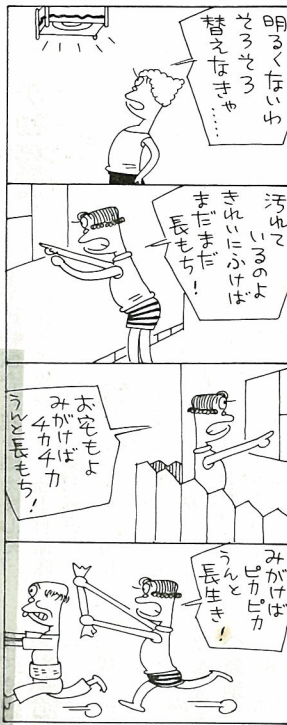 明るくないわ
そろそろ
替えなきゃ……
汚れて
いるのよ
きれいにふけば
まだまだ
長もち！
お宅もよ
みがけば
チカチカ
うんと長もち！
みがけば
ピカピカ
うんと
長生き！